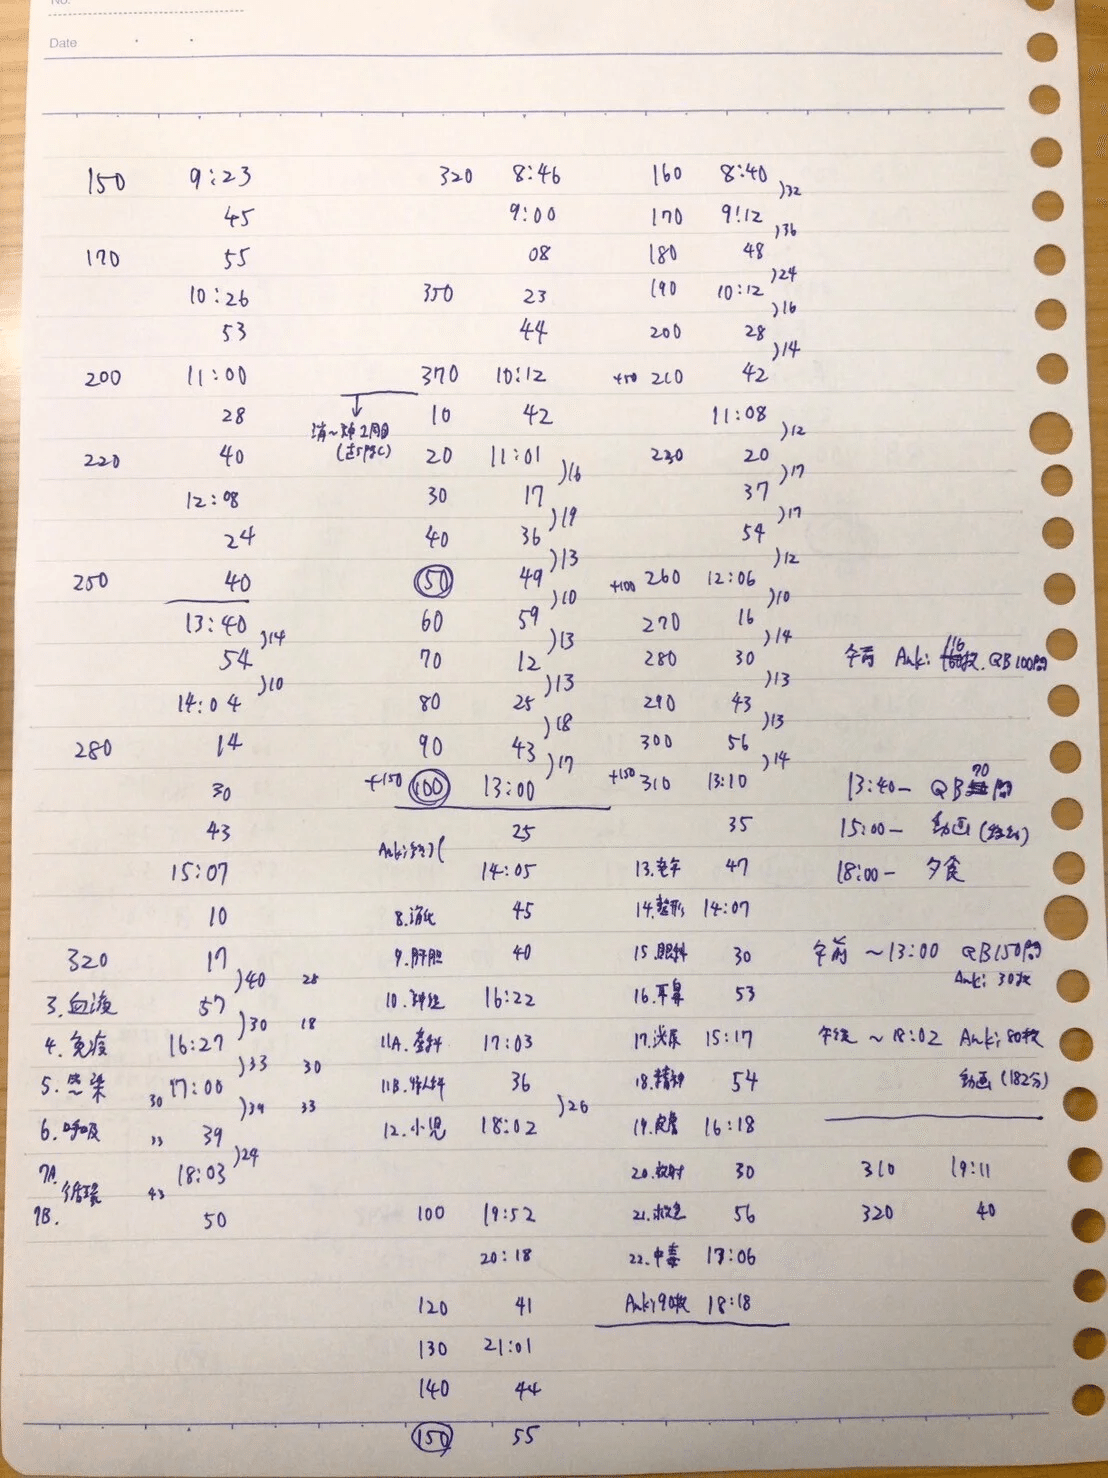 No.
Date
150 9:23
45
170 55
10:26
53
200 11:00
28
220 40
12:08
24
250 40
13:40
)14
54
)10
14:04
280 14
30
43
15:07
10
320 17
)40 28
3.血液 57
)30 18
4.免疫 16:27
)33 30
5.感染 30 17:00
)39 33
6.呼吸 33 39
)24
7A. 循環 43 18:03
7B. 50
320 8:46
9:00
08
350 23
44
370 10:12
10 42
20 11:01
)16
30 17
)19
40 36
)13
50 49
)10
60 59
)13
70 12
)13
80 25
)18
90 43
)17
+150 100 13:00
25
14:05
8.消化 45
9.肝胆 40
10.神経 16:22
11A.産科 17:03
11B.婦人科 36
)26
12.小児 18:02
100 19:52
20:18
120 41
130 21:01
140 44
150 55
160 8:40
)32
170 9:12
)36
180 48
)24
190 10:12
)16
200 28
)14
+50 210 42
11:08
)12
230 20
)17
37
)17
54
)12
+100 260 12:06
)10
270 16
)14
280 30
)13
290 43
)13
300 56
)14
+150 310 13:10
35
13.老年 47
14.整形 14:07
15.眼科 30
16.耳鼻 53
17.泌尿 15:17
18.精神 54
19.皮膚 16:18
20.放射 30
21.救急 56
22.中毒 17:06
Anki90枚 18:18
午前 Anki 116枚. QB100問
13:40- QB70問
15:00- 動画
18:00- 夕食
午前 ~13:00 QB150問
Anki 30枚
午後 ~18:02 Anki 80枚
動画(182分)
310 19:11
320 40